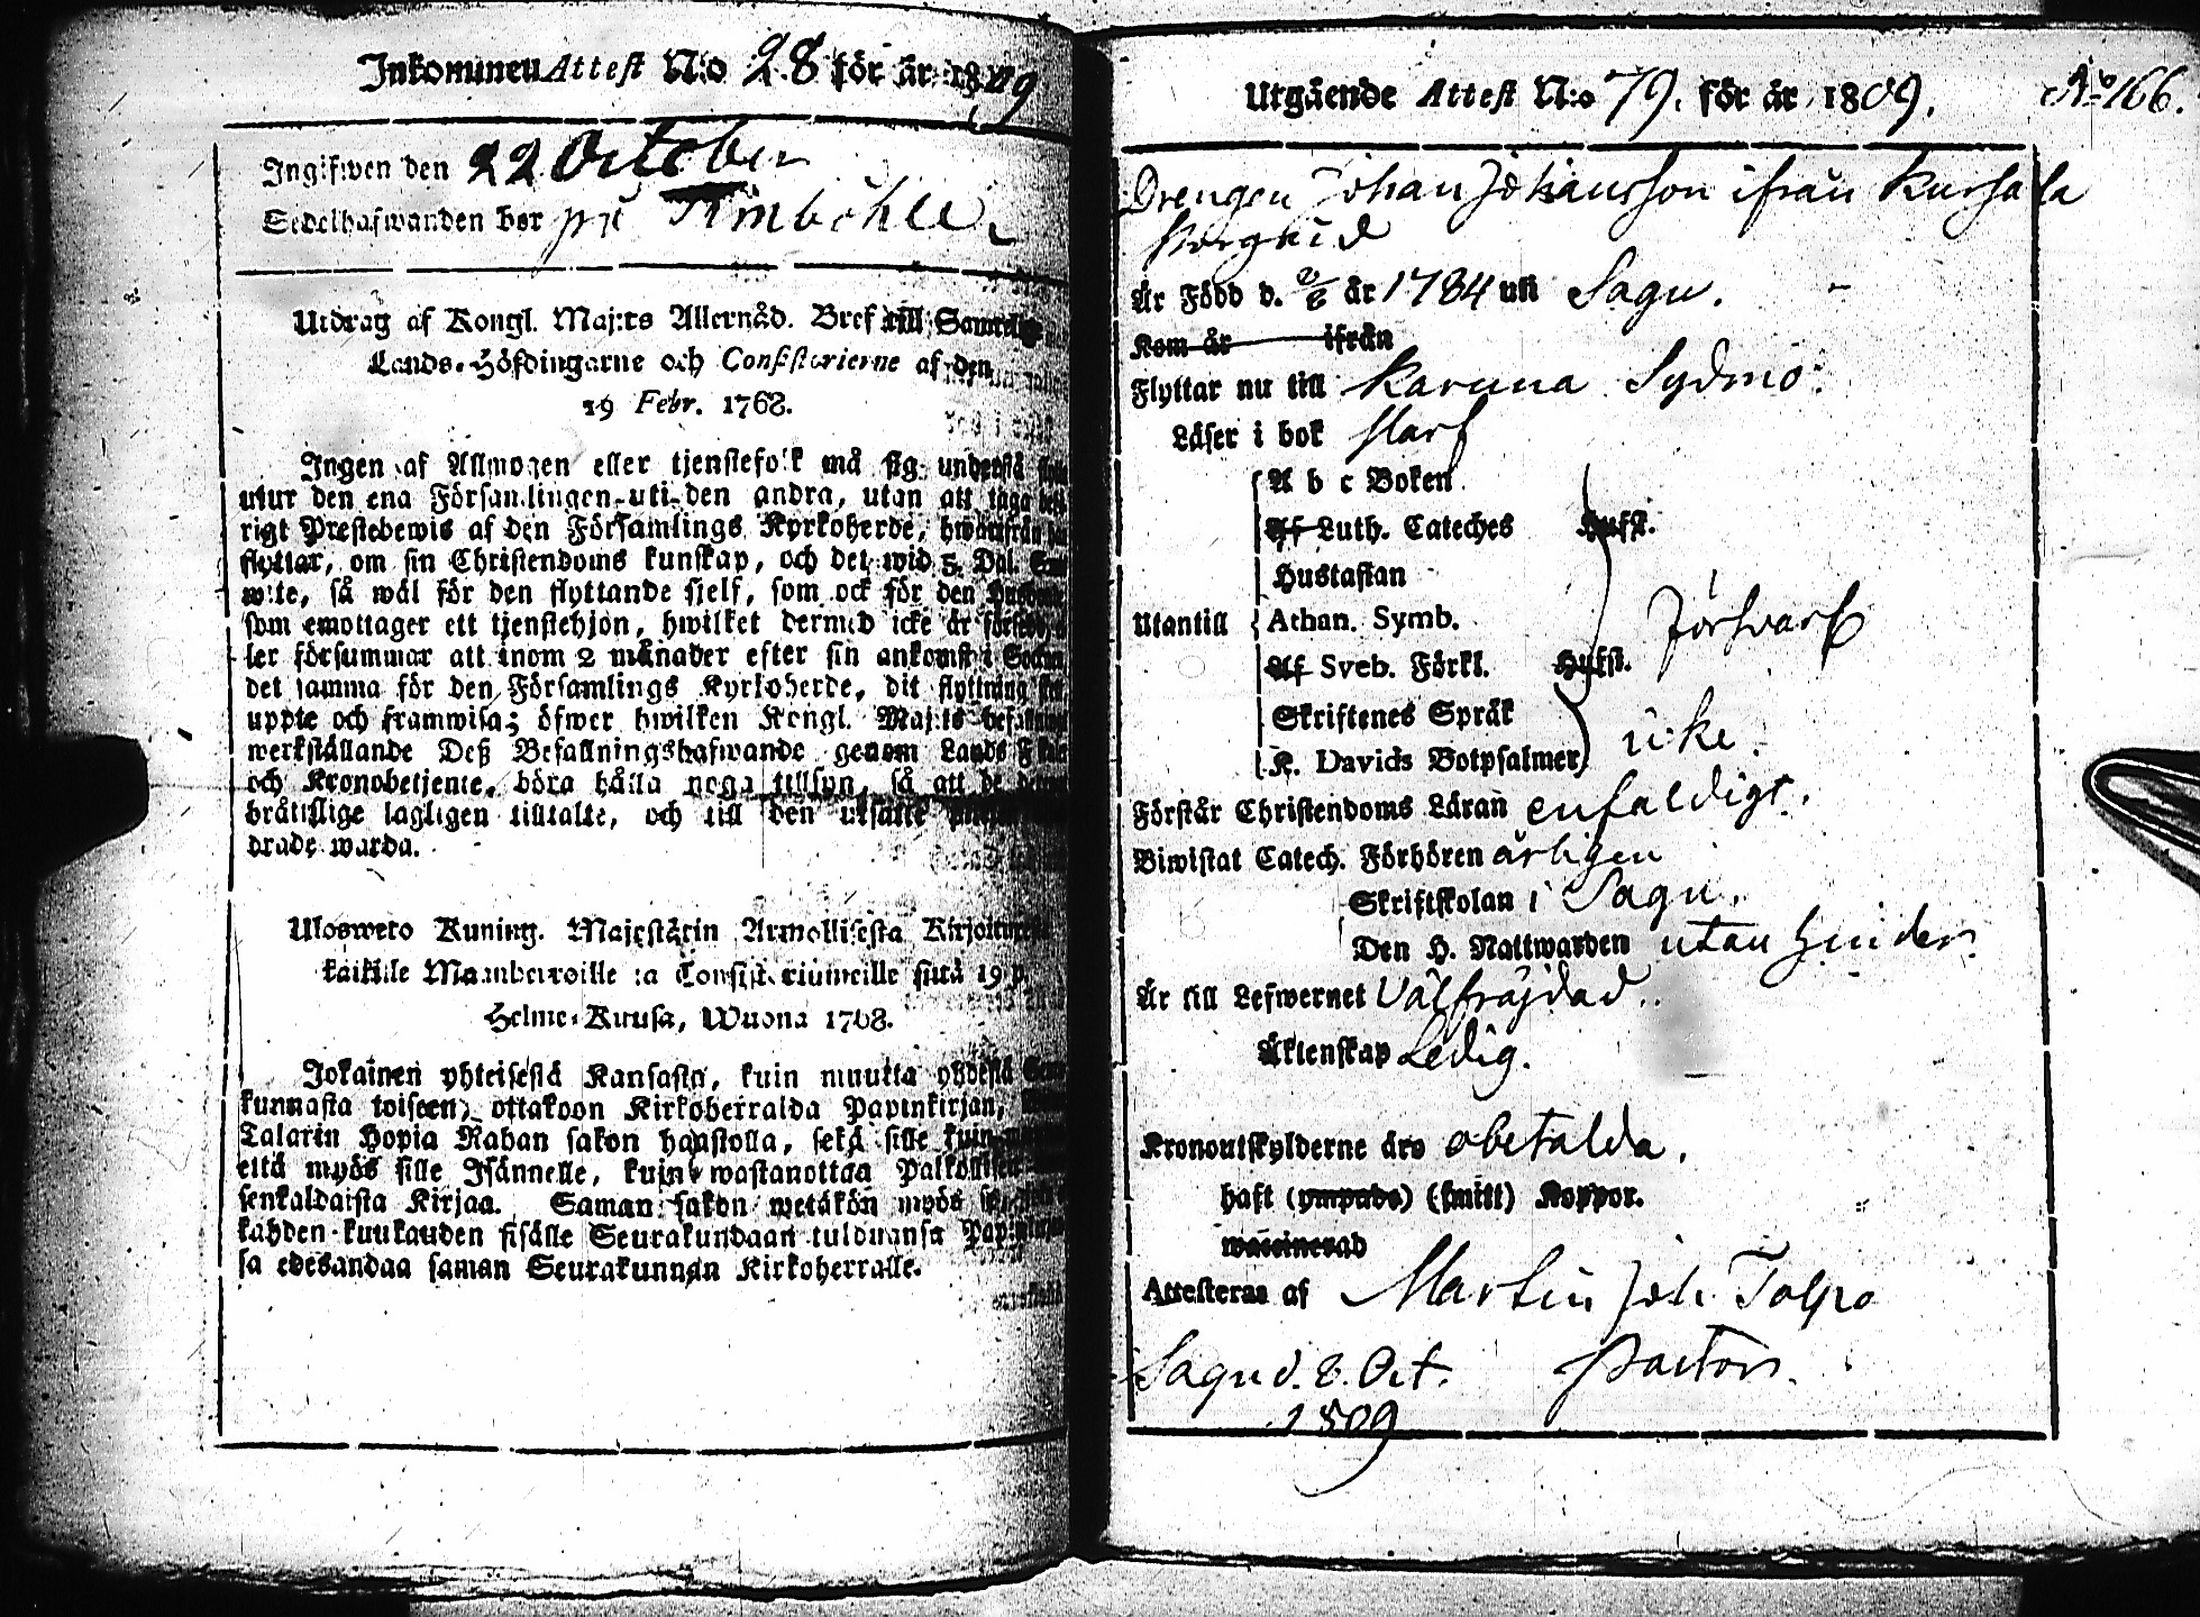 Inkommen Attest N:o 28 för år 1809
Ingifwen den 22 October
Sedelhafwanden bor på
Utdrag af Kongl. Maj:ts Allernåd. Bref till Samtelige
Lands-Höfdingarne och Consistorierne af den
19 Febr. 1768.
Ingen af Allmogen eller tjenstefolk må sig understå
utur den ena Församlingen uti den andra, utan att taga
rigt Prestebewis af den Församlings Kyrkoherde, hwarifrån
flyttar, om sin Christendoms kunskap, och det wid 5. Dal.
wite, så wäl för den flyttande sjelf, som ock för den
som emottager ett tjenstehjon, hwilket dermed icke är
ler försummar att inom 2 månader efter sin ankomst i
det samma för den Församlings Kyrkoherde, dit flyttning
uppte och framwisa; öfwer hwilken Kongl. Maj:ts
werkställande Deß Befallningshafwande genom Lands
och Kronobetjente, böra hålla noga tillsyn, så att de
bråttslige lagligen tilltalte, och till den utsatte
drade warda.
Ulosweto Kuning. Majestätin Armollisesta
kaikille Maanherroille ja Consistoriumeille siitä 19 p.
Helme-Kuusa, Wuona 1768.
Jokainen yhteisestä Kansasta, kuin muutta yhdestä
kunnasta toiseen, ottakoon Kirkoherralda Papinkirjan,
Talarin Hopia Rahan sakon haastolla, sekä sille kuin
että myös sille Isännelle, kuin wastanottaa
senkaldaista Kirjaa. Saman sakon wetäkön myös
kahden kuukauden sisälle Seurakundaan tulduansa
sa edesandaa saman Seurakunnan Kirkoherralle.
Utgående Attest N:o 79. för år 1809. No 166.
Drengen Johan Johansson ifrån
Är Född d. 2/6 år 1784 uti Sagu.
Kom år ifrån
Flyttar nu till Karuna Sydmo.
Läser i bok Svarf
A b c Boken
Af Luth. Cateches Hufst.
Hustaflan
Utantill Athan. Symb. försvarl
Af Sveb. Förkl. Hufst.
Skriftenes Språk
K. Davids Botpsalmer icke.
Förstår Christendoms Läran enfaldigt.
Biwistat Catech. Förhören årligen
Skriftskolan i Sagu.
Den H. Nattwarden utan hinder.
Är till Lefwernet Välfräjdad.
Äktenskap Ledig.
Kronoutskylderne äro obetalda.
haft (ympade) (smitt) Koppor.
waccinerad
Attesteras af Martin Joh. Tolpo
Sagu d. 8. Oct. Pastor.
1809